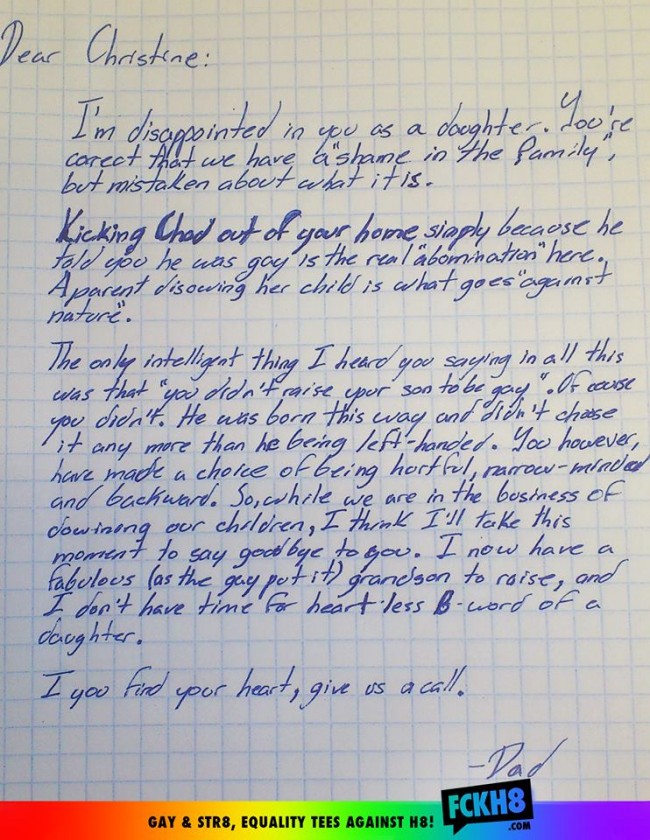 Dear Christine:
I'm disappointed in you as a daughter. You're
corect that we have a "shame in the family",
but mistaken about what it is.
Kicking Chad out of your home simply because he
told you he was gay is the real "abomination" here.
A parent disowing her child is what goes "against
nature".
The only intelligent thing I heard you saying in all this
was that "you didn't raise your son to be gay". Of couse
you didn't. He was born this way and didn't choose
it any more than he being left-handed. You however,
have made a choice of being hurtful, narrow-minded
and backward. So, while we are in the business of
dowinong our children, I think I'll take this
moment to say goodbye to you. I now have a
fabulous (as the gay put it) grandson to raise, and
I don't have time for heart-less B-word of a
daughter.
I you find your heart, give us a call.
-Dad
GAY & STR8, EQUALITY TEES AGAINST H8!
FCKH8
.COM